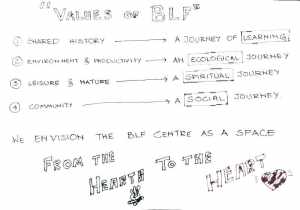 "VALUES OF BLF"
1 SHARED HISTORY → A JOURNEY OF LEARNING
2 ENVIRONMENT & PRODUCTIVITY → AN ECOLOGICAL JOURNEY
3 LEISURE & NATURE → A SPIRITUAL JOURNEY
4 COMMUNITY → A SOCIAL JOURNEY
WE ENVISION THE BLF CENTRE AS A SPACE
FROM THE HEARTH TO THE HEART